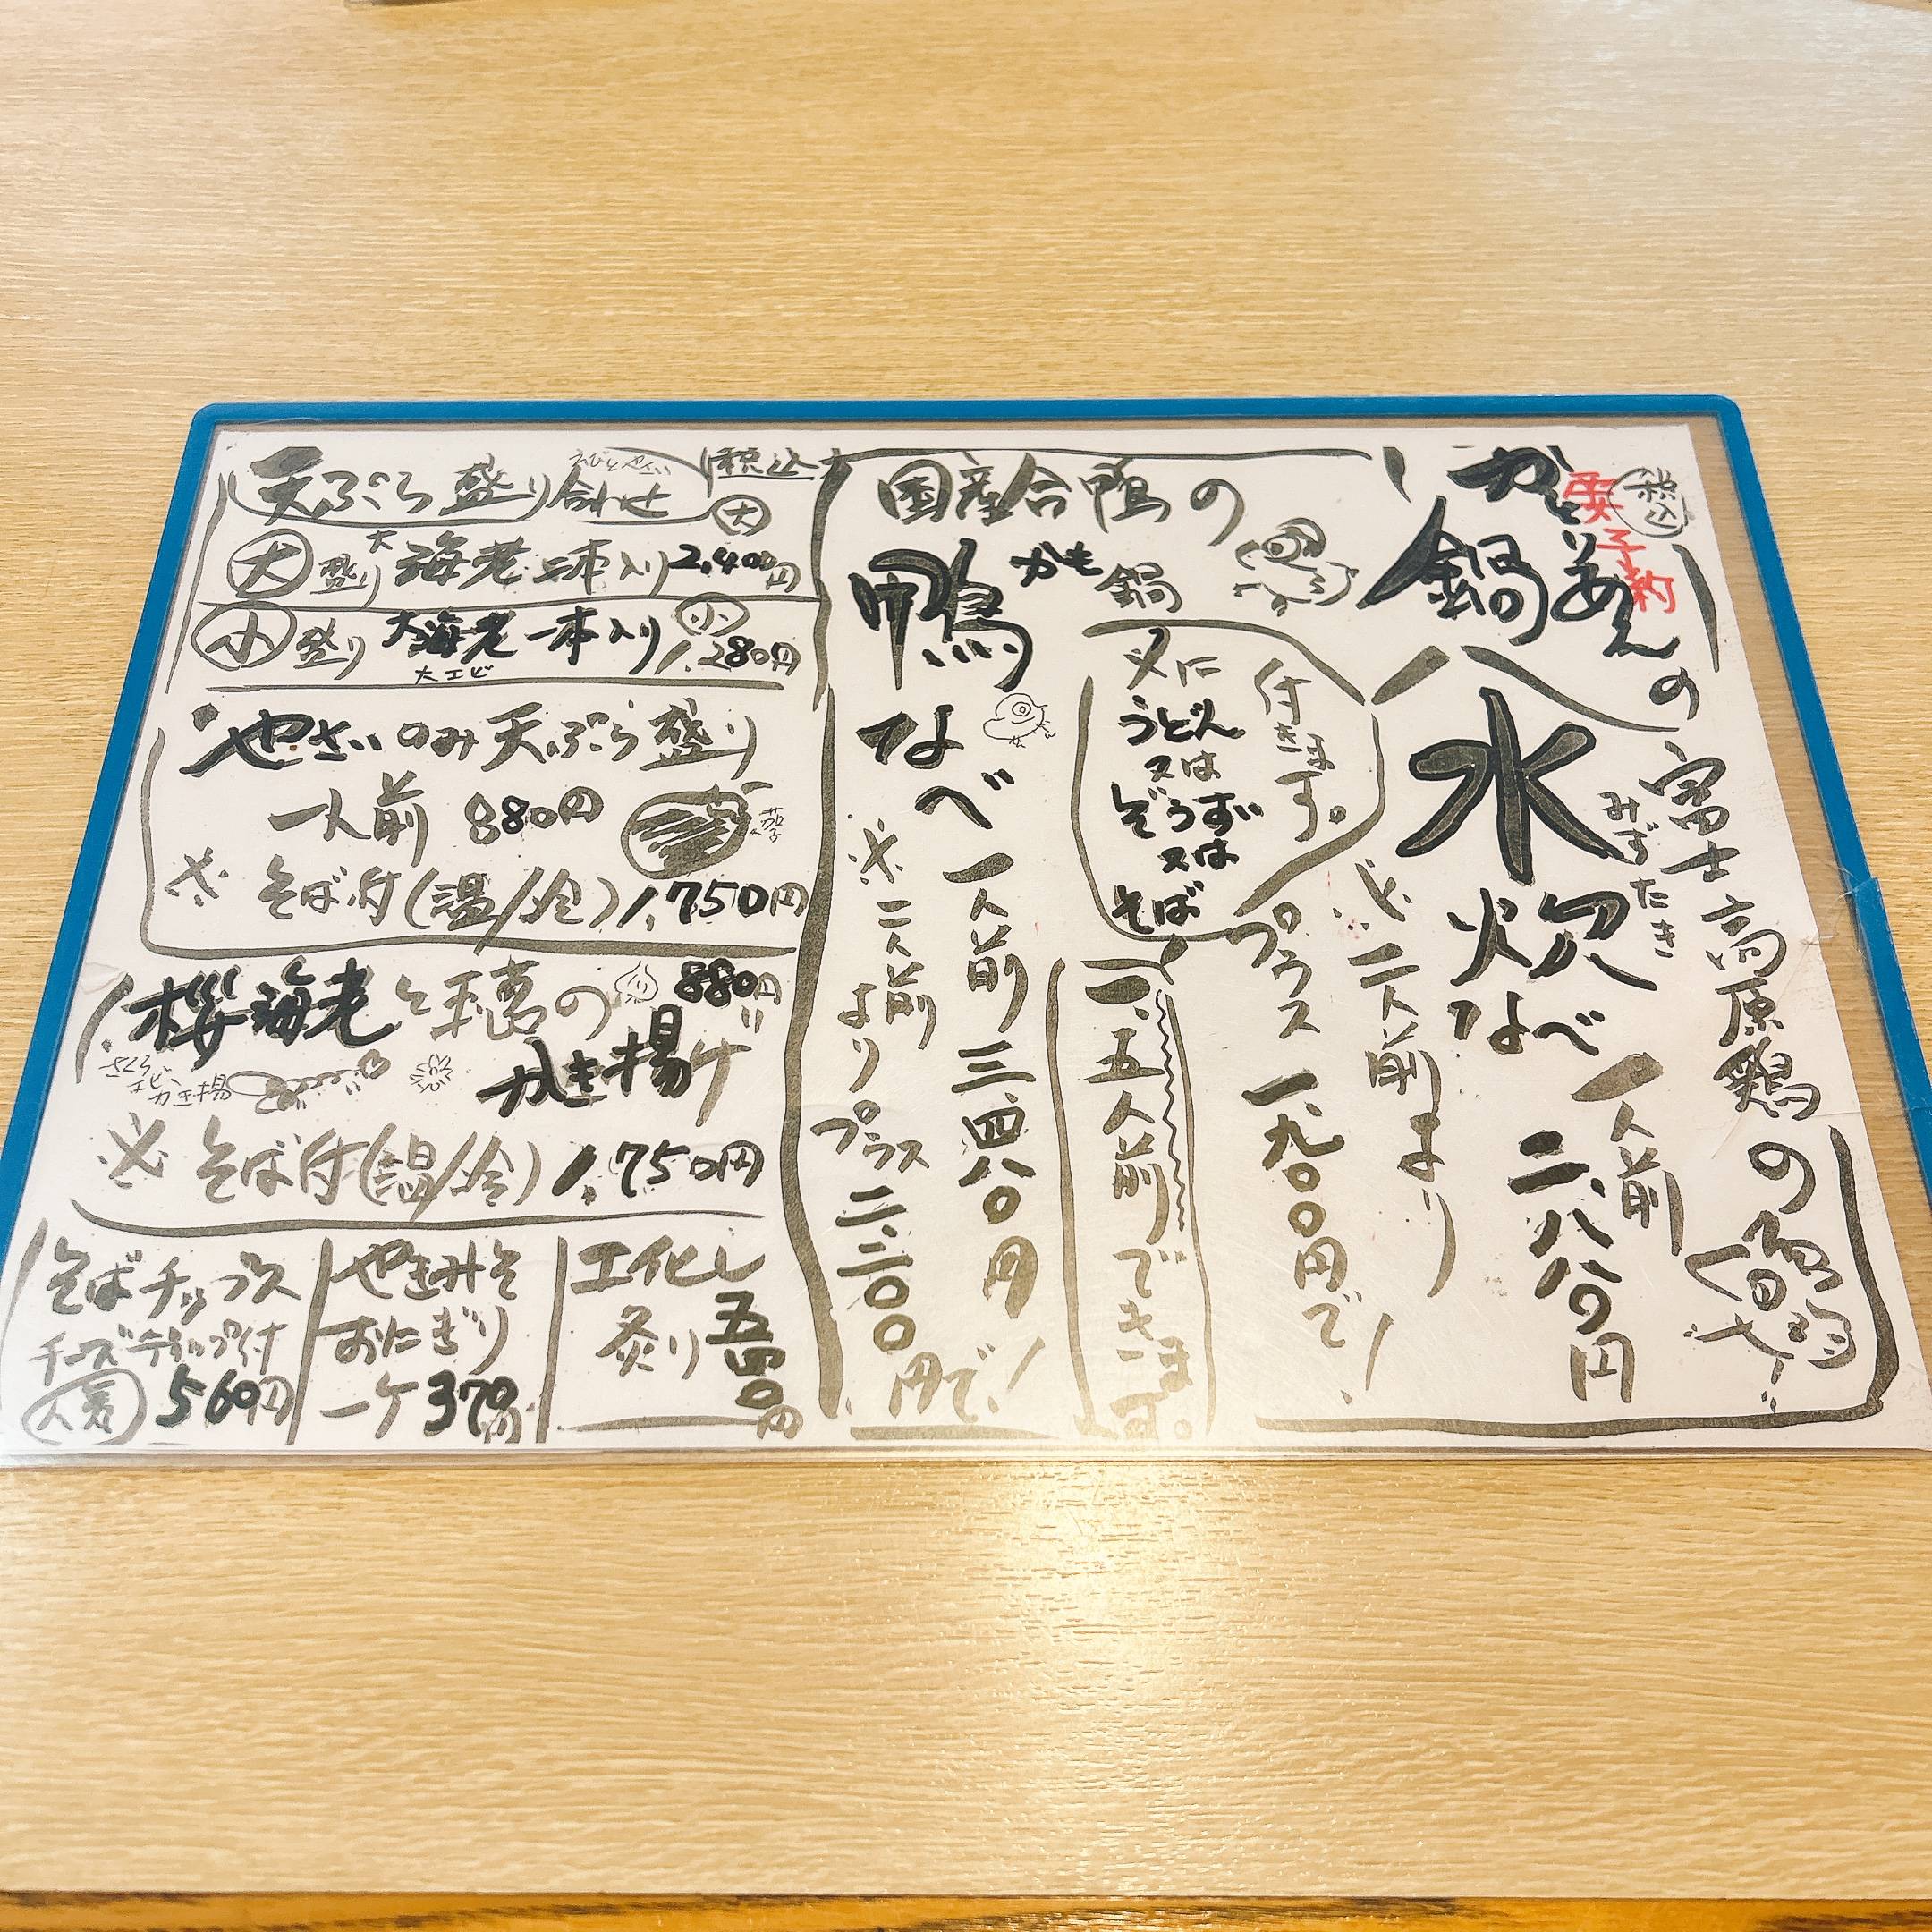 税込
要予約
鍋
の
富士高原鶏の
水炊なべ
みずたき
一人前
二、八八〇円
※二人前より
プラス一、九〇〇円で!
〆に
うどん
又は
ぞうすい
又は
そば
付きます。
一、五人前できます。
国産合鴨の
かも鍋
鴨なべ
一人前三、四八〇円
※二人前より
プラス二、二〇〇円で!
天ぷら盛り合わせ
えびとやさい
税込
大盛り 大海老二本入り 大 2,400円
小盛り 大海老一本入り 小 1,280円
大エビ
やさいのみ天ぷら盛り
一人前 880円
茄子
※ そば付(温/冷) 1,750円
桜海老と玉葱の 880円
かき揚げ
さくら
エビ
かき揚
※ そば付(温/冷) 1,750円
そばチップス
チーズディップ付
人気 560円
やきみそ
おにぎり
一ケ 370円
炙り
五五〇円